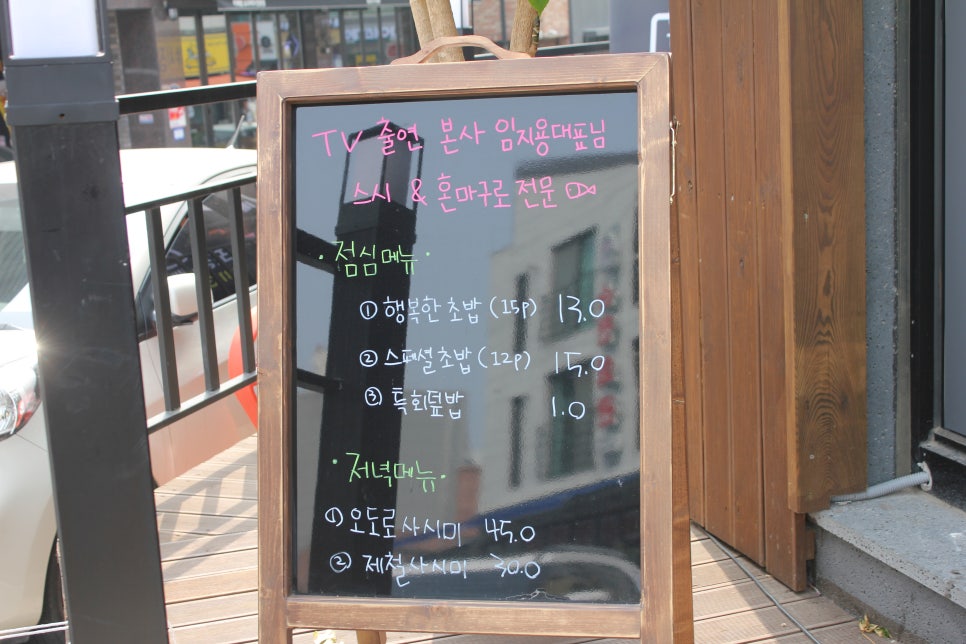 TV 출연 본사 임지용대표님
스시 & 혼마구로 전문
· 점심메뉴 ·
① 행복한초밥 (15p) 13.0
② 스페셜초밥 (12p) 15.0
③ 특회덮밥 1.0
· 저녁메뉴 ·
① 오도로사시미 45.0
② 제철사시미 30.0